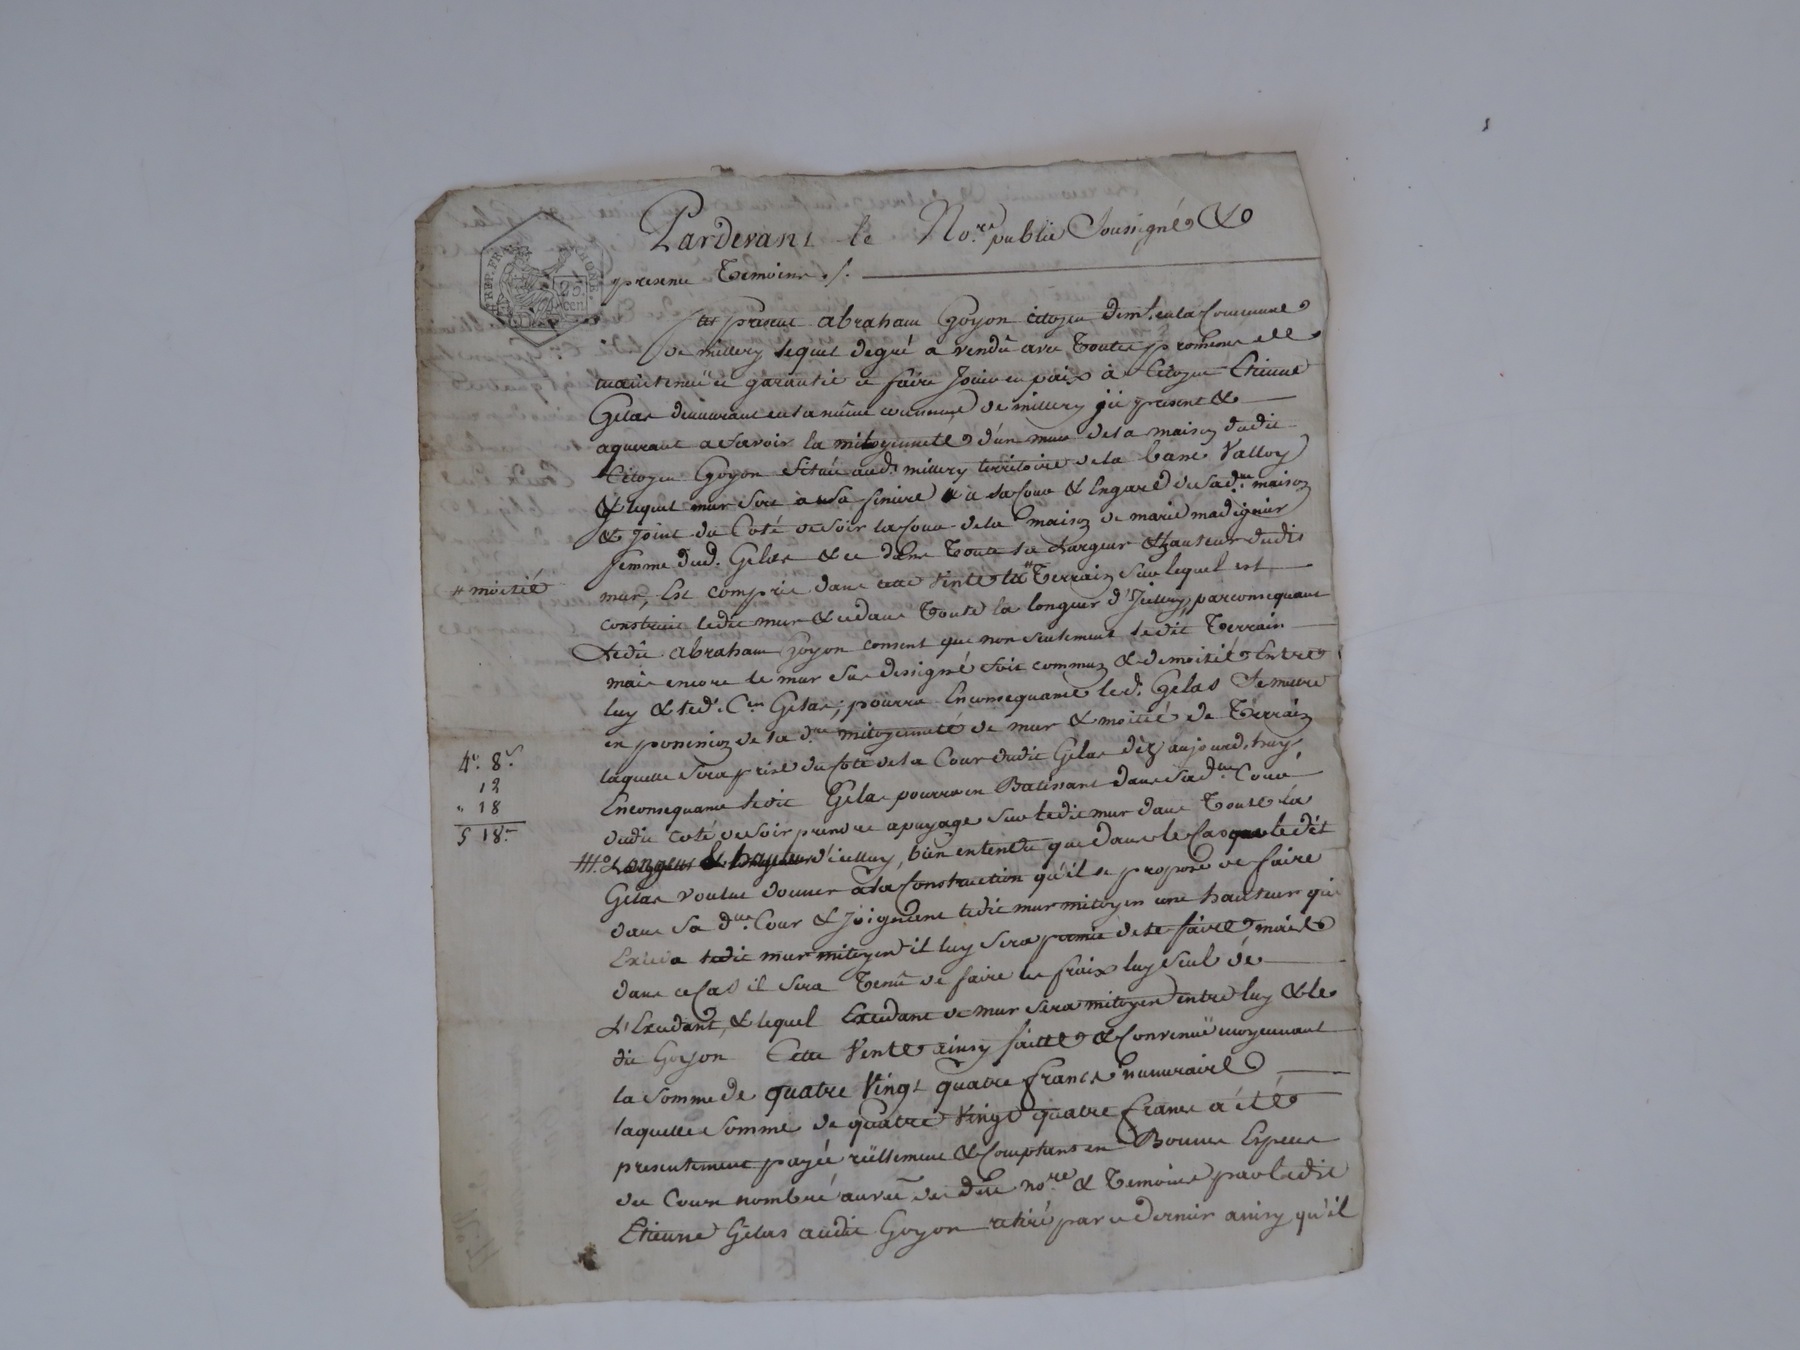 Pardevant le No.re public Soussigné &
presence Temoins ./.
REP. FRA
25. cen
fut present abraham Goyon citoyen dem.t en la Commune
de millery lequel de gré a vendû avec Toutes promesse de
maintenüe garantie et faire Jouir en paix à Citoyen Etienne
Gelas demeurant en la même commune de millery ici present &
aquerant a Savoir la mitoyenneté d'un mur de la maison dudit
Citoyen Goyon Située aud. millery territoire de la
& lequel mur Sert à Sa & à Sa Cour & Engard de Sad.te maison
& Joint du Coté de Soir la Cour de la maison de marie madignier
femme dud. Gelas & ce dans Toute la Largeur & hauteur dudit
# moitié
mur, Est comprie dans cette vente la # Terrain Sur lequel est
construit ledit mur & ce dans Toute la longuer d'Jcelluy, par consequant
ledit abraham Goyon consent que non Seulement ledit Terrain
mais encore le mur Sus dessigné Soit commun & de moitié Entre
luy & led. C.en Gelas; pourra En consequance led. Gelas Se mettre
en possession de la d.te mitoyenneté de mur & moitié de Terrain
laquelle Sera prise du Coté de la Cour dudit Gelas dèz aujourd'huy.
En consequance ledit Gelas pourra en Batissant dans Sa d.te Cour
dudit coté de Soir prendre apuyage Sur ledit mur dans Toute la
4. 8.
12
" 18
5 18.
Largeur & hauteur d'icelluy, bien entendu que dans le Cas que ledit
Gelas voulut donner à la Construction qu'il se propose de faire
dans Sa d.te Cour & Joignant ledit mur mitoyen une hauteur qui
Exceda ledit mur mitoyen il luy Sera permis de le faire mais
dans ce Cas il Sera Tenû de faire les fraix luy Seul de
L'Excedant, & lequel Excedant de mur Sera mitoyen entre luy & le
dit Goyon Cette Vente ainsy faitte & Convenüe moyennant
la Somme de quatre Vingt quatre francs numeraire
laquelle Somme de quatre Vingt quatre francs a été
presentement payée réellement & Comptant en Bonnes Especes
de Cours nombré au vû des dits no.re & Temoins par ledit
Etienne Gelas audit Goyon retiré par ce dernier ainsy qu'il